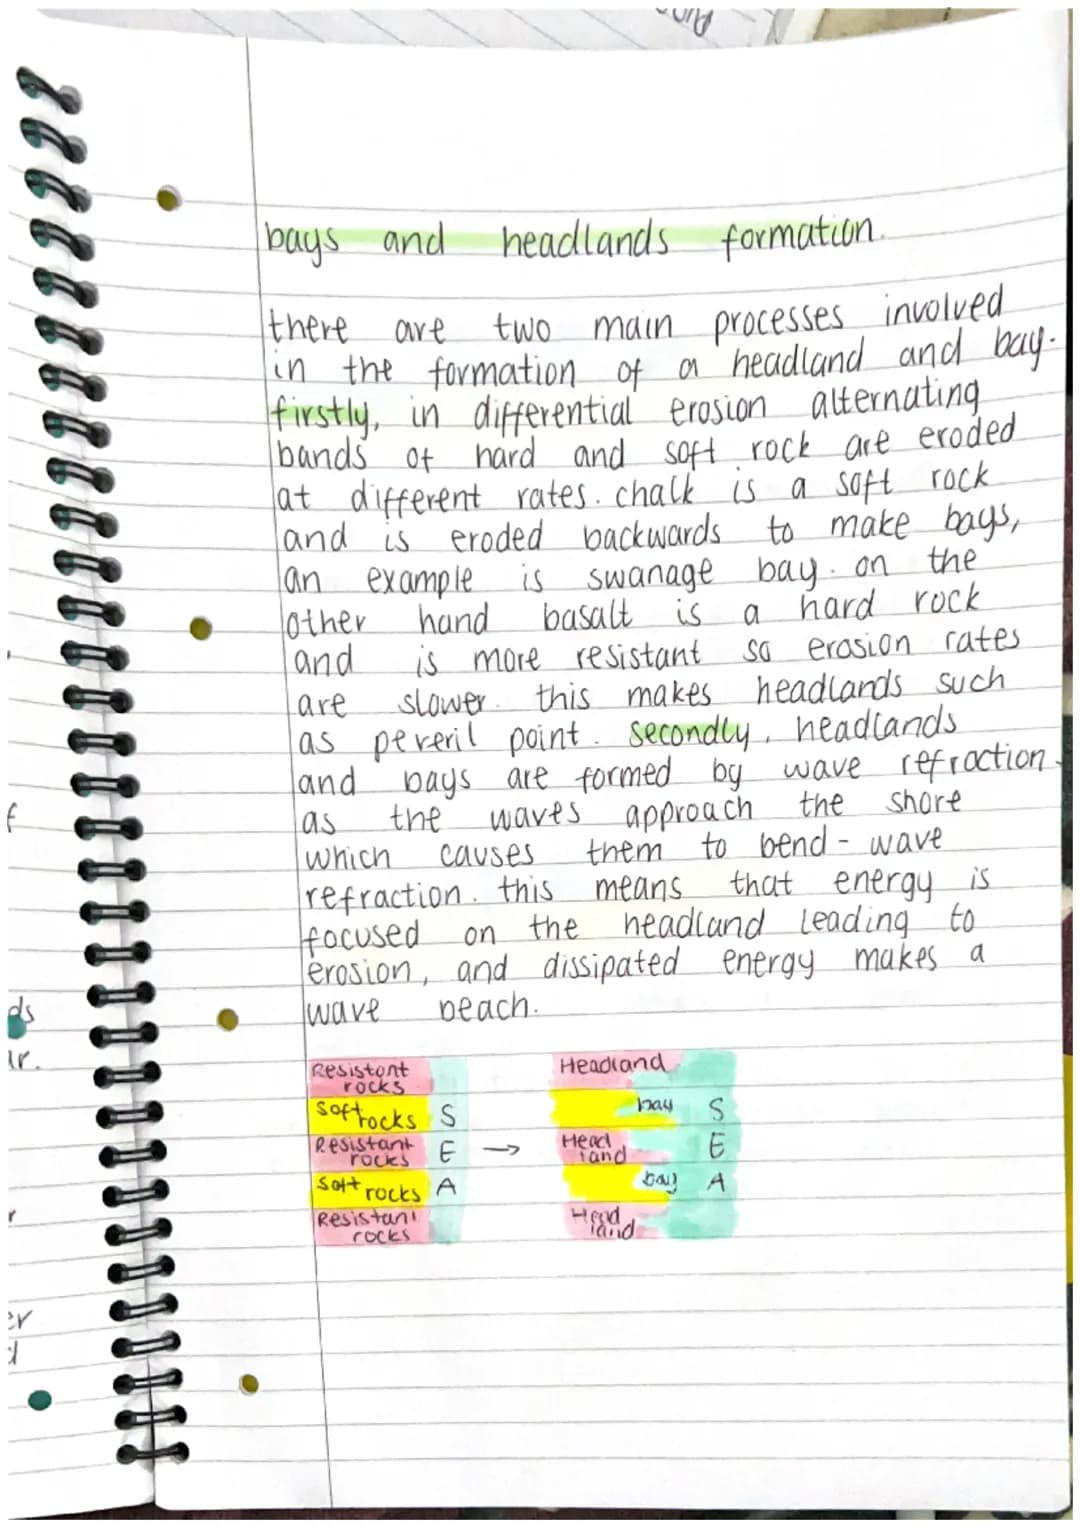 bays and headlands formation.
there are two main processes involved
in the formation of a headland and bay.
firstly, in differential erosion alternating
bands of hard and soft rock are eroded
at different rates. chalk is a soft rock
and is eroded backwards to make bays,
an example is swanage bay. on the
other hand basalt is a hard rock
and is more resistant so erosion rates
are slower. this makes headlands such
as peveril point. secondly, headlands
and bays are formed by wave refraction.
as the waves approach the shore
which causes them to bend - wave
refraction. this means that energy is
focused on the headland leading to
erosion, and dissipated energy makes a
wave beach.
Resistant
rocks
Soft rocks
Resistant
rocks
Soft rocks
Resistant
rocks
S
E
A
→
Headland
bay
Head
land
bay
Head
land
S
E
A
ds
ur.
er